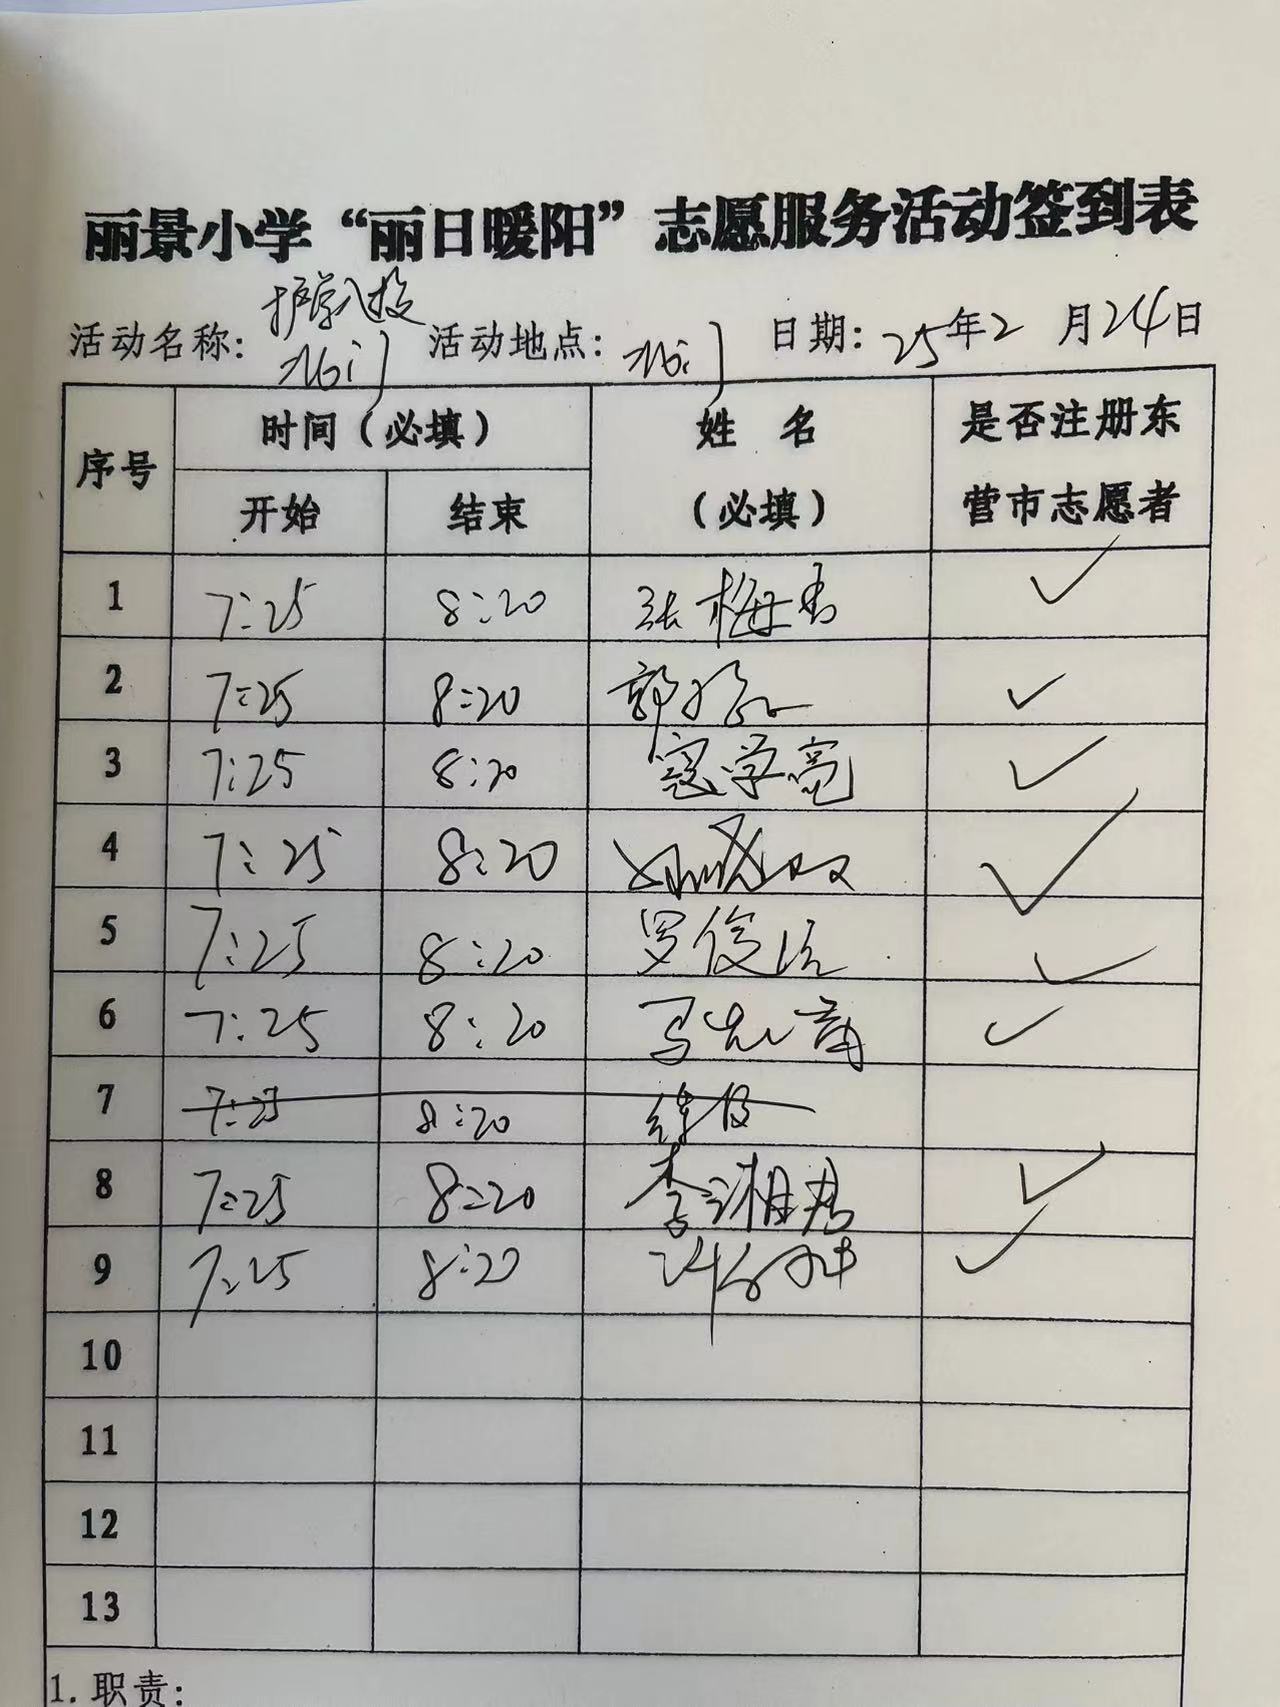 丽景小学“丽日暖阳”志愿服务活动签到表
护学入校
活动名称: 北门 活动地点: 北门 日期: 25年2月24日
序号 时间(必填) 姓 名 是否注册东
开始 结束 (必填) 营市志愿者
1 7:25 8:20 张梅 ✓
2 7:25 8:20 郭 ✓
3 7:25 8:20 寇学亮 ✓
4 7:25 8:20 ✓
5 7:25 8:20 罗俊 ✓
6 7:25 8:20 马 ✓
7 7:25 8:20
8 7:25 8:20 李湘君 ✓
9 7:25 8:20 ✓
10
11
12
13
1. 职责: